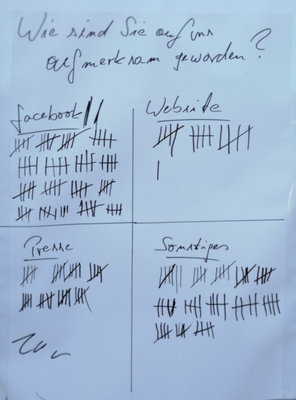 Wie sind Sie auf uns
aufmerksam geworden?
Facebook
Website
Presse
Sonstiges